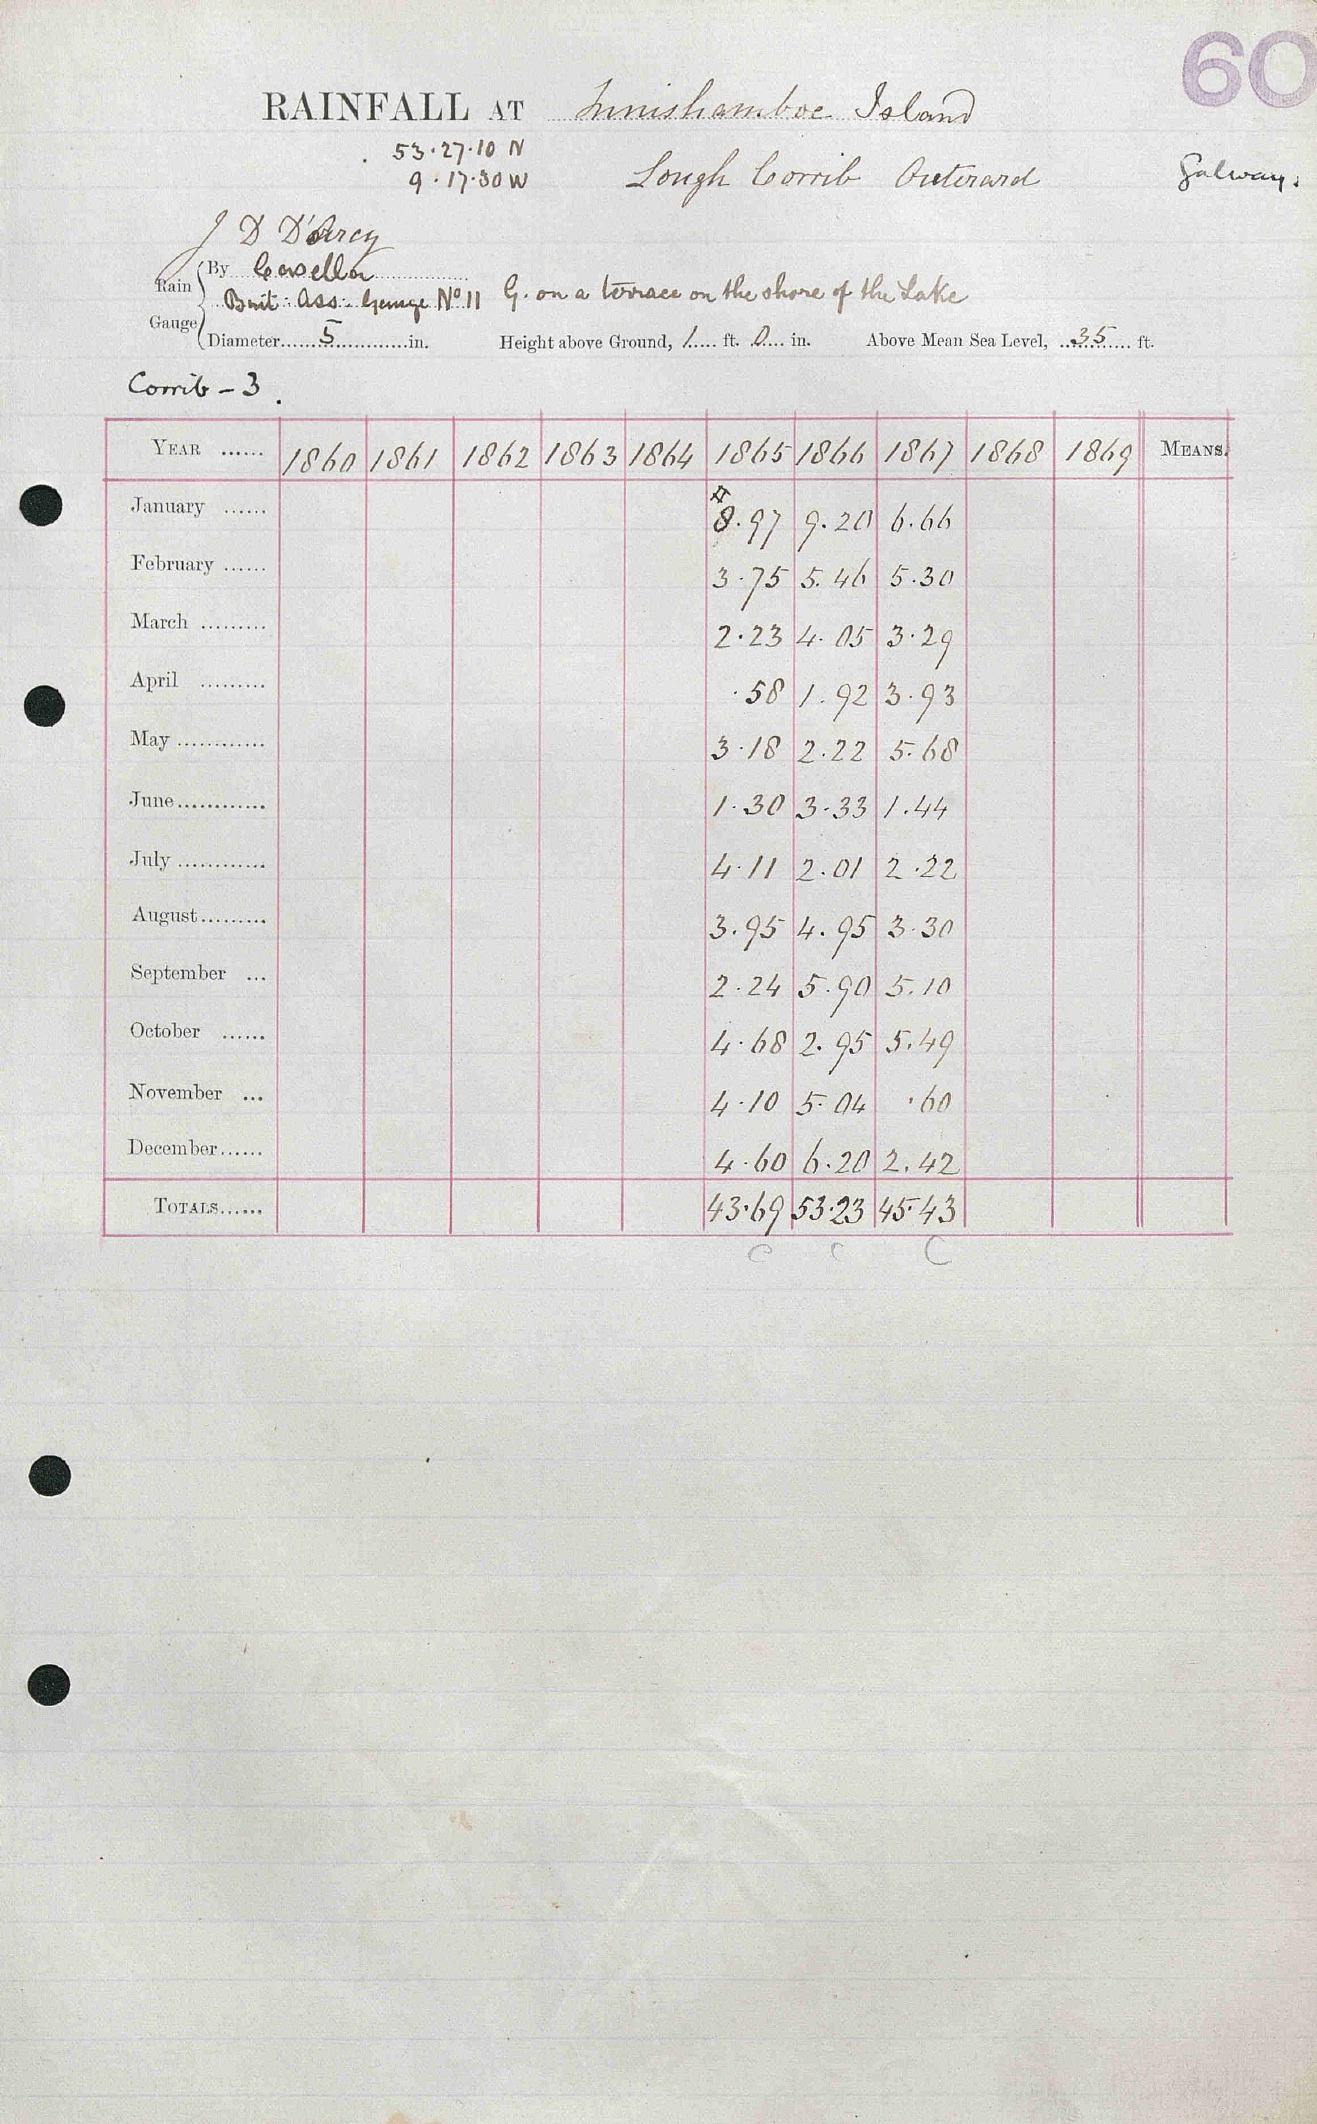 60
RAINFALL AT Innishamboe Island
53.27.10 N
9.17.30 W Lough Corrib Outerard Galway.
J D D'Arcy
Rain Gauge By Casella
Brit. Ass. Gauge No 11 G. on a terrace on the shore of the Lake
Diameter......5............in. Height above Ground, 1..... ft. 0.... in. Above Mean Sea Level, ..35...... ft.
Corrib - 3.
YEAR ...... 1860 1861 1862 1863 1864 1865 1866 1867 1868 1869 MEANS.
January ...... # 8.97 9.20 6.66
February ...... 3.75 5.46 5.30
March ......... 2.23 4.05 3.29
April ......... .58 1.92 3.93
May ............ 3.18 2.22 5.68
June............ 1.30 3.33 1.44
July ............ 4.11 2.01 2.22
August......... 3.95 4.95 3.30
September ... 2.24 5.90 5.10
October ...... 4.68 2.95 5.49
November ... 4.10 5.04 .60
December...... 4.60 6.20 2.42
TOTALS...... 43.69 53.23 45.43
C C C